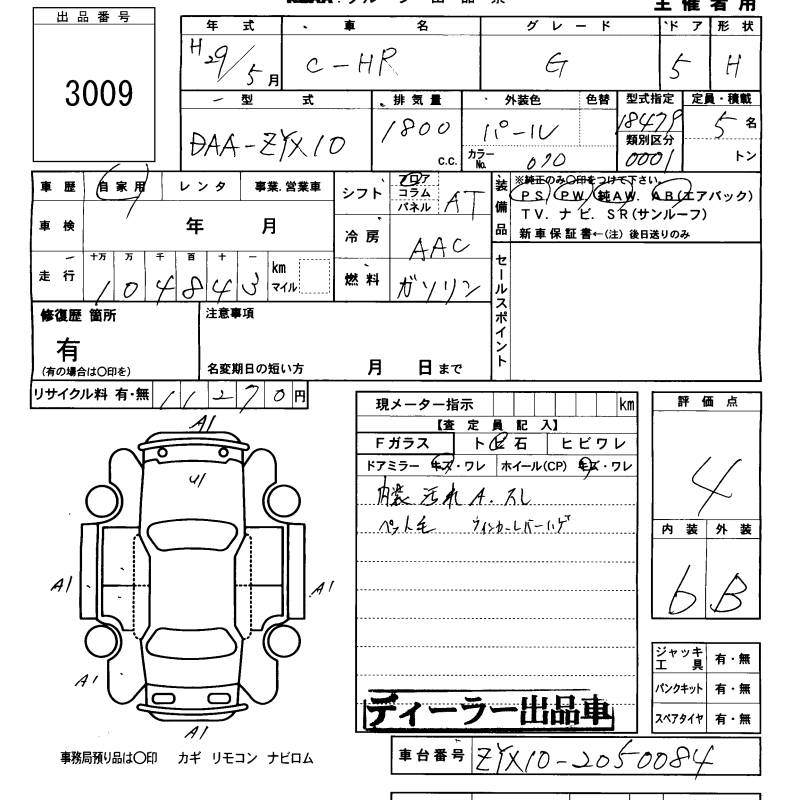 主催者用
出品番号
3009
年式 車名 グレード ドア 形状
H 29/5月 C-HR G 5 H
型式 排気量 外装色 色替 型式指定 定員・積載
DAA-ZYX10 1800 c.c. パール 18479 5名
カラーNo. 070 類別区分 0001 トン
車歴 自家用 レンタ 事業.営業車
シフト フロア コラム パネル AT
装備品
※純正のみ○印をつけて下さい。
PS PW. 純AW. AB(エアバック)
TV. ナビ. SR(サンルーフ)
新車保証書←(注) 後日送りのみ
車検 年 月
冷房 AAC
走行 十万 万 千 百 十 一
104843 km マイル
燃料 ガソリン
セールスポイント
修復歴 箇所
有
(有の場合は○印を)
注意事項
名変期日の短い方 月 日まで
リサイクル料 有・無 11270円
現メーター指示 km
【査定員記入】
Fガラス トビ石 ヒビワレ
ドアミラー キズ・ワレ ホイール(CP) キズ・ワレ
内装 汚れ A.スレ
ペット毛 ウィンカーレバーハゲ
評価点
4
内装 外装
6 B
A1
U1
A1
A1
A1
A1
ジャッキ工具 有・無
パンクキット 有・無
スペアタイヤ 有・無
ディーラー出品車
事務局預り品は○印 カギ リモコン ナビロム
車台番号 ZYX10-2050084